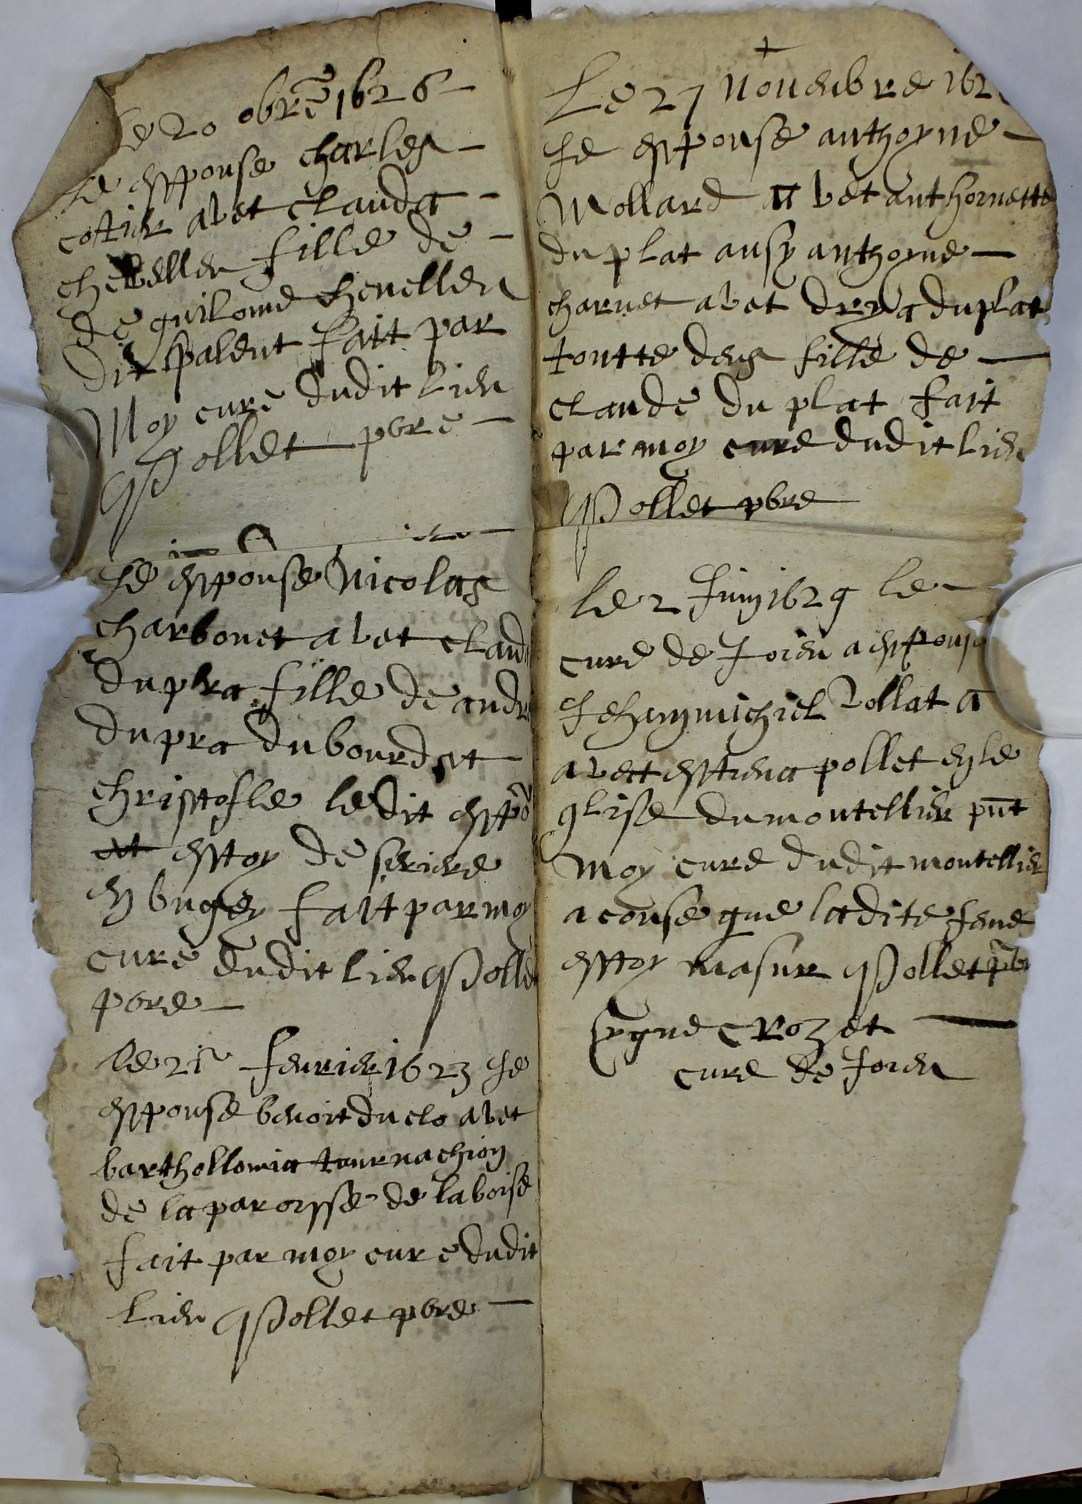 le 20 obre 1626
Je espouse charles
cotier avet clauda
chevelleu fille de
de guilome chevelleu
dit palent fait par
Moy cure dudit lieu
Pollet pbre
Je espouse Nicolas
charbonet avet claud
dupra fille de andr
dupra du bourdt st
christofle le dit espo
estoy de seriere
en bugey fait par moy
cure dudit lieu Polle
pbre
le 21 feurier 1623 Je
espouse benoit duclo avet
barthollomia tournachion
de la paroisse de laboise
fait par moy cure dudit
lieu Pollet pbre
Le 27 Novenbre 162
Je espouse anthoyne
Mollard avet anthornette
du plat ausy anthoyne
charvet avet duplat
toutte deus fille de
claude du plat fait
par moy cure dudit lieu
Pollet pbre
le 2 Juin 1629 le
cure de Joieu a espouse
Jehan michiel Vollat a
avect estiena pollet en le
glise du montellier pnt
moy cure dudit montellier
a couse que ladite feme
estoy masur Pollet pbr
sygne Crozet
cure de Joieu